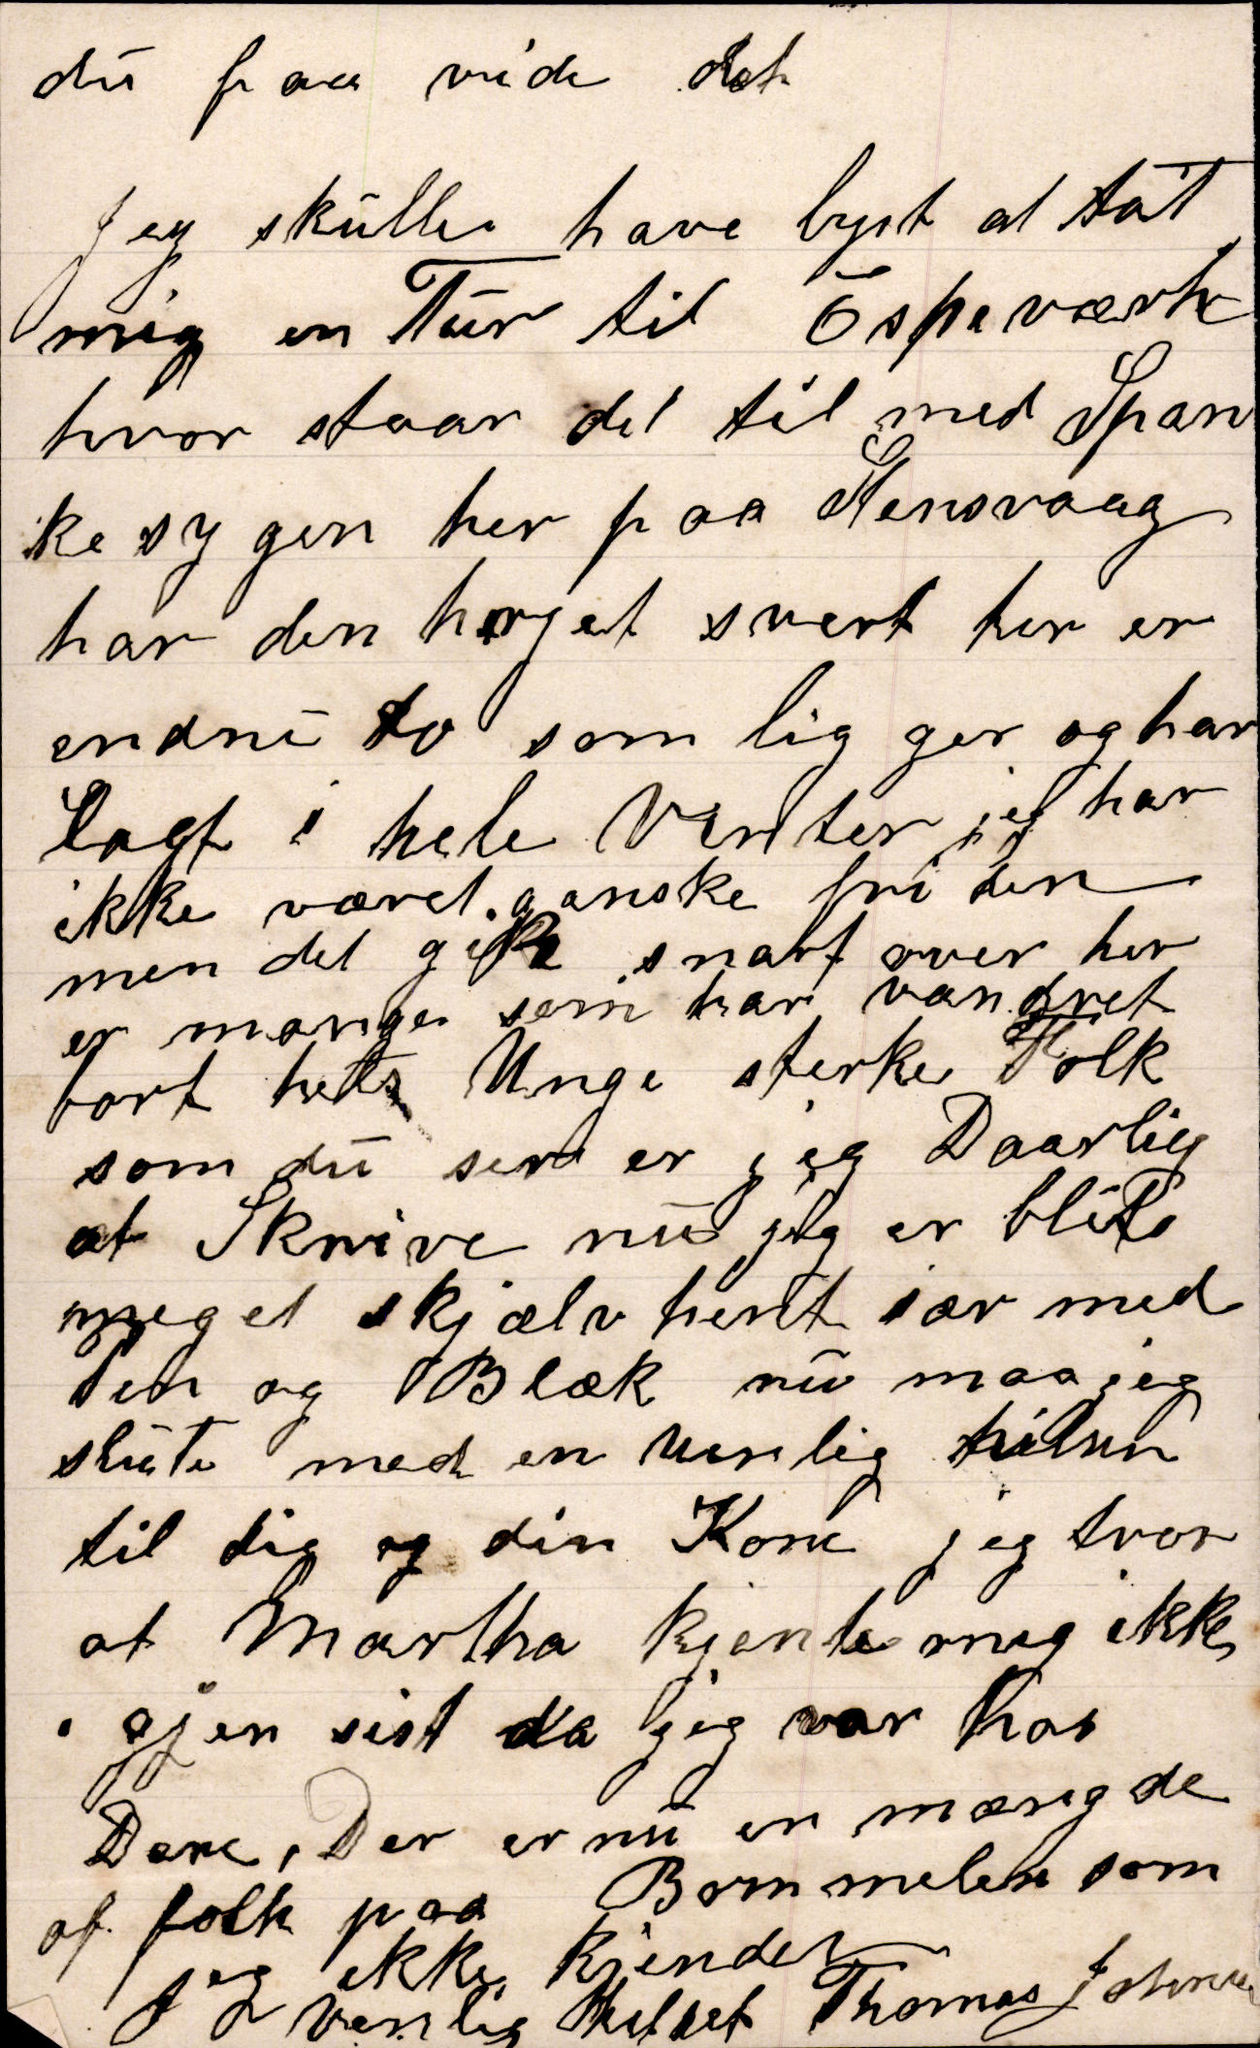 du faa vide det
Jeg skulle have lyst at tat
mig en Tur til Espeværk
hvor staar det til med Span
ske sygen her paa Stensvaag
har den herget svert her er
endnu to som lig ger og har
lagt i hele Vinter jeg har
ikke været ganske fri den
men det gik snart over her
er mange som har vandret
bort helts Unge sterke Folk
som du ser er jeg Daarlig
at Skrive nu jeg er blit
meget skjælv hent sær med
Pen og Blæk nu maa jeg
slute med en venlig hilsen
til dig og din Kone jeg tror
at Martha kjente mig ikke
igjen sist da jeg var hos
Dere, Der er nu en mængde
af folk paa Bømmelen som
jeg ikke kjender
Venlig Hilset Thomas